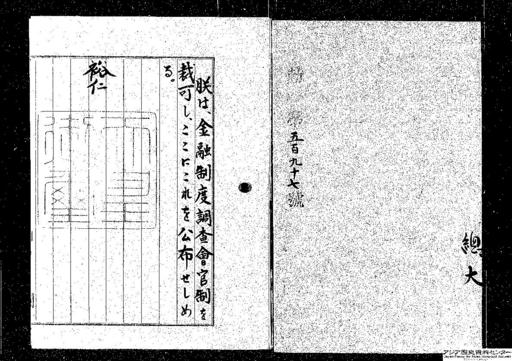 第五百九十七號
總
大
朕は、金融制度調査會官制を
裁可し、ここにこれを公布せしめ
る。
裕仁
天皇御璽
アジア歴史資料センター